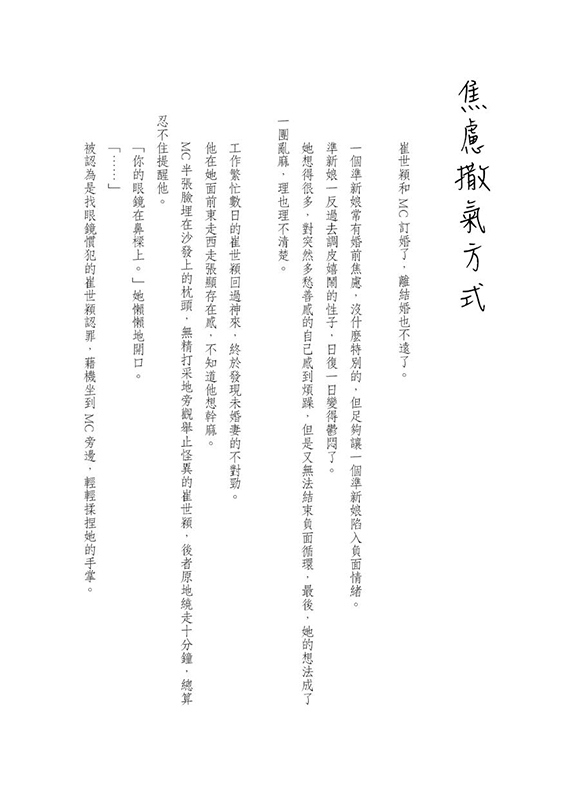 焦慮撒氣方式
崔世潁和MC訂婚了，離結婚也不遠了。
一個準新娘常有婚前焦慮，沒什麼特別的，但足夠讓一個準新娘陷入負面情緒。
準新娘一反過去調皮嬉鬧的性子，日復一日變得鬱悶了。
她想得很多，對突然多愁善感的自己感到煩躁，但是又無法結束負面循環，最後，她的想法成了
一團亂麻，理也理不清楚。
工作繁忙數日的崔世潁回過神來，終於發現未婚妻的不對勁。
他在她面前東走西走張顯存在感，不知道他想幹麻。
MC半張臉埋在沙發上的枕頭，無精打采地旁觀舉止怪異的崔世潁，後者原地繞走十分鐘，總算
忍不住提醒他。
「你的眼鏡在鼻樑上。」她懶懶地開口。
「……」
被認為是找眼鏡慣犯的崔世潁認罪，藉機坐到MC旁邊，輕輕揉捏她的手掌。